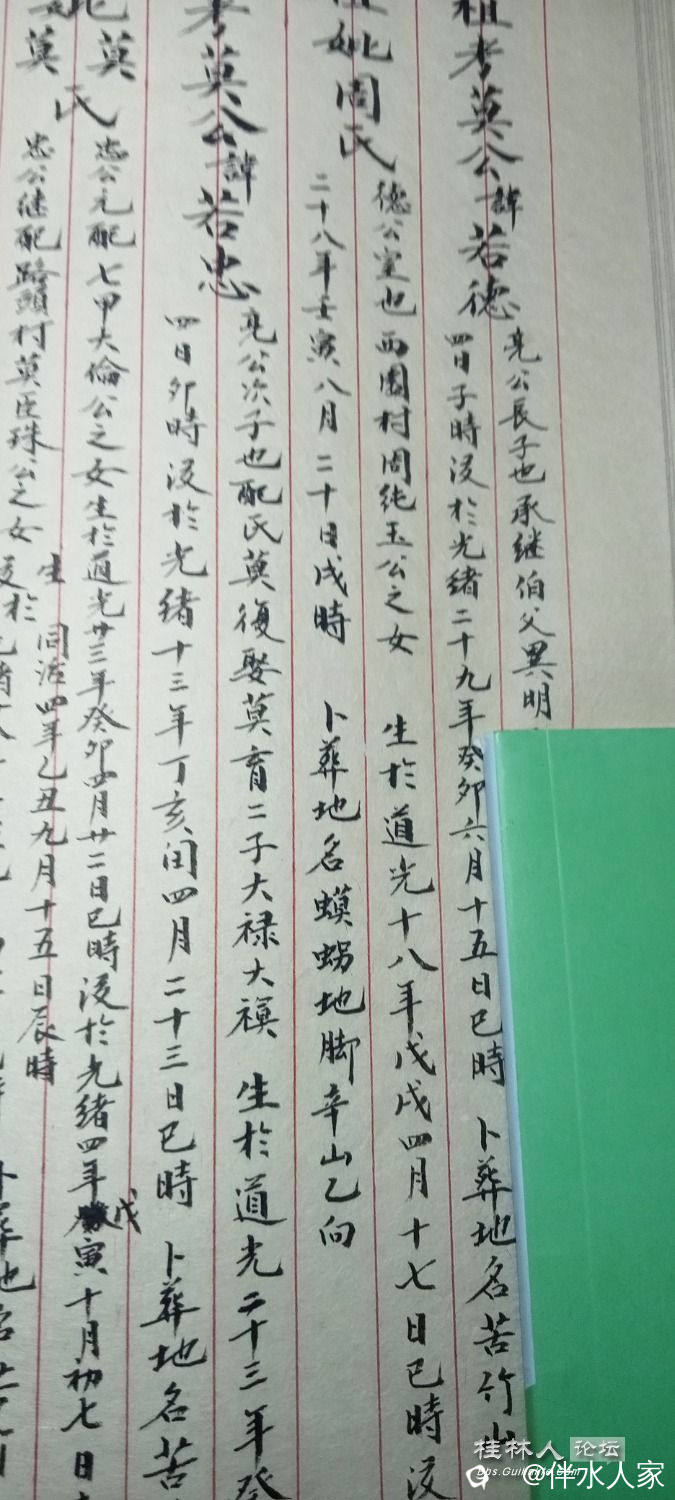 祖考莫公諱若德
亮公長子也承继伯父異明
四日子時没於光绪二十九年癸卯六月十五日巳時 卜葬地名苦竹山
妣周氏
德公室也西園村周纯玉公之女 生於道光十八年戊戌四月十七日巳時没
二十八年壬寅八月二十日戌時 卜葬地名蟆蜴地脚辛山乙向
考莫公諱若忠
亮公次子也配氏莫復娶莫育二子大禄大禩 生於道光二十三年癸
四日卯時没於光绪十三年丁亥闰四月二十三日巳時 卜葬地名苦
妣莫氏
忠公元配七甲大倫公之女生於道光廿三年癸卯四月廿二日巳時没於光绪四年戊寅十月初七日
莫
忠公继配路頭村莫臣珠公之女 生同治四年乙丑九月十五日辰時
没於
卜葬地名
桂林人论坛
bbs.Guilin
@伴水人家